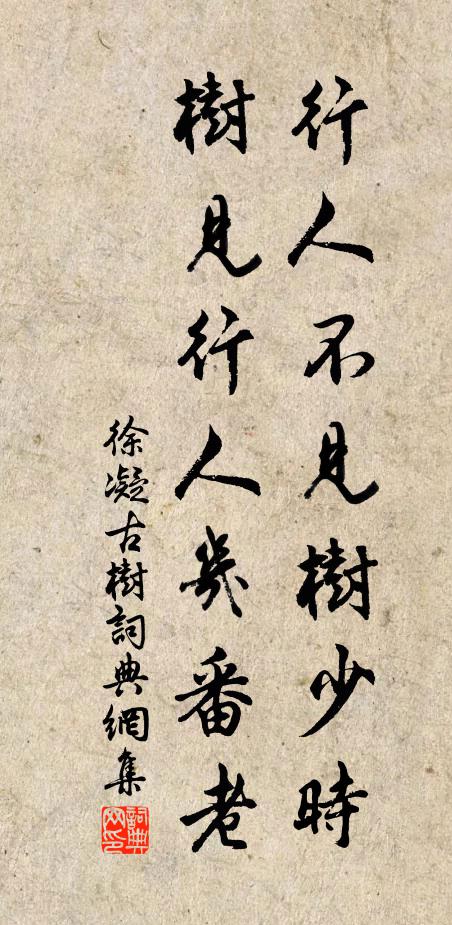 行人不見樹少時
樹見行人幾番老
徐凝古樹詞典網集
詞典網印